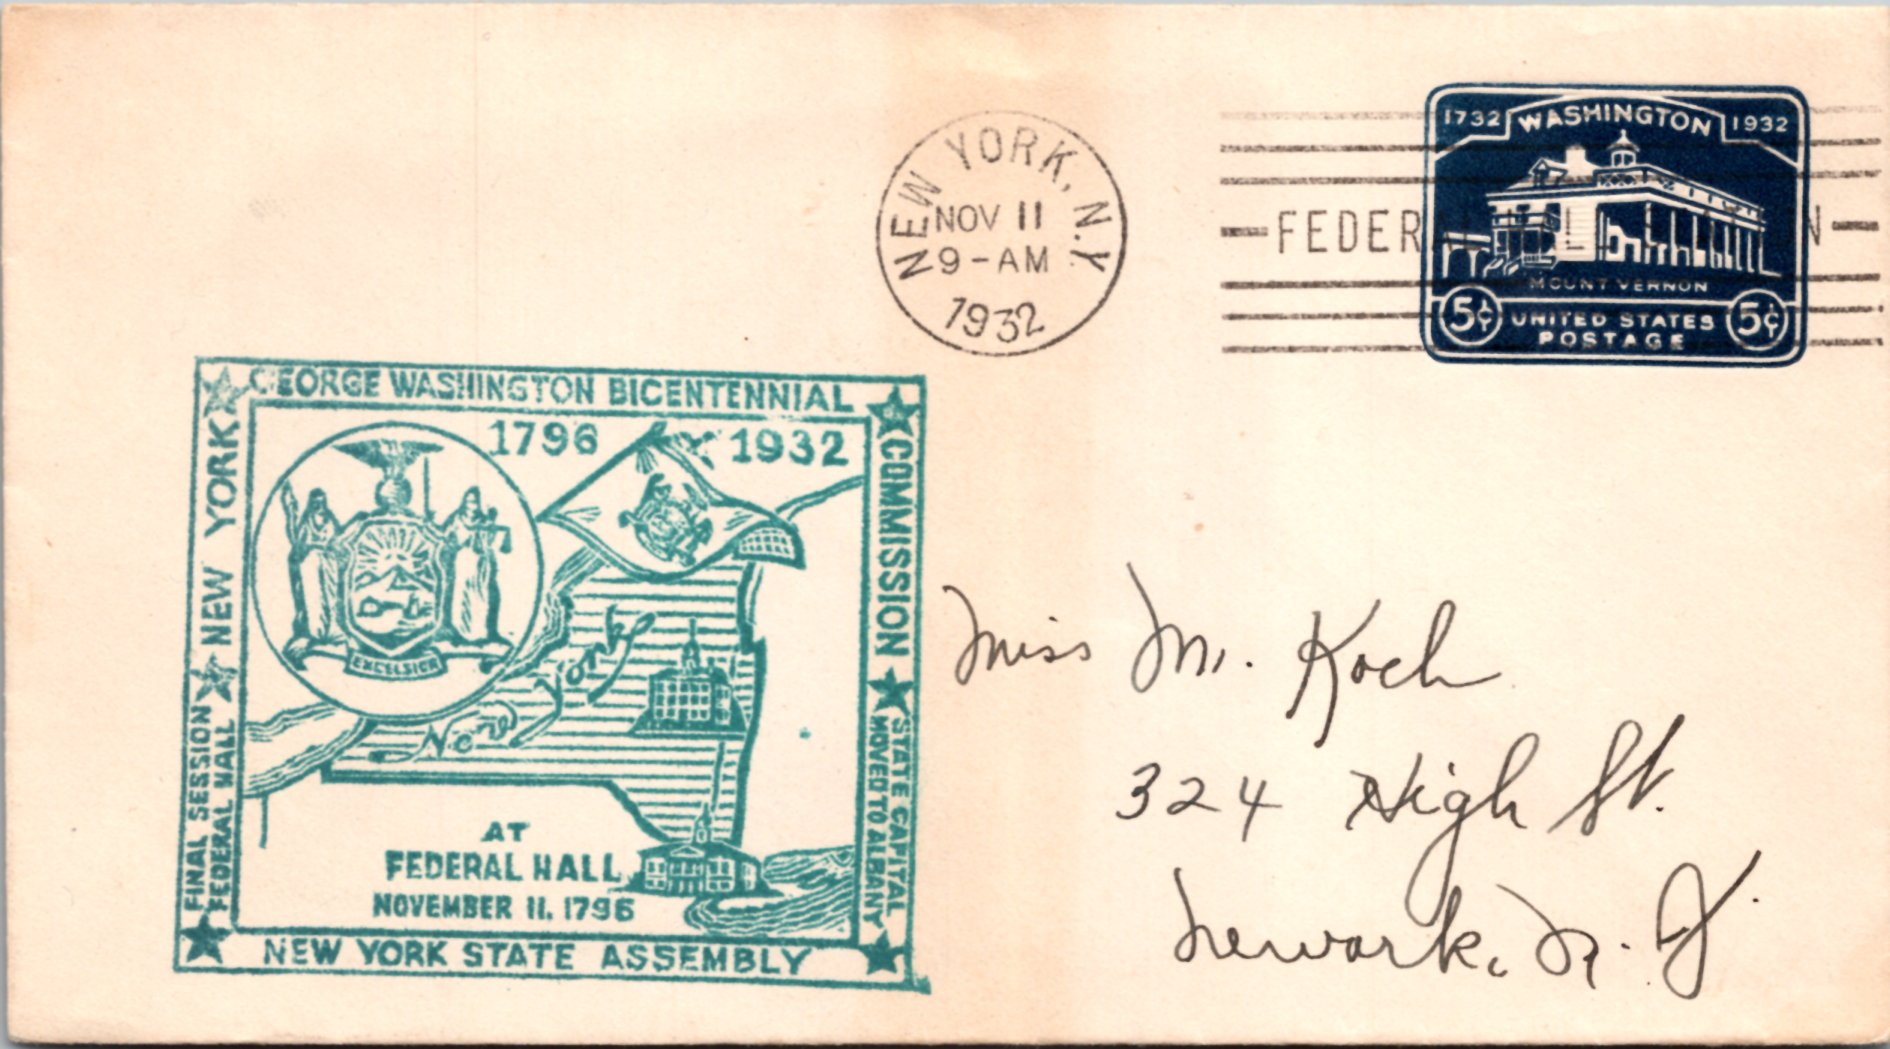 NEW YORK, N.Y.
NOV 11
9-AM
1932
FEDERAL
1732 WASHINGTON 1932
MOUNT VERNON
5¢ UNITED STATES 5¢
POSTAGE
GEORGE WASHINGTON BICENTENNIAL
COMMISSION
NEW YORK
1796 1932
EXCELSIOR
New York
FINAL SESSION
FEDERAL HALL
STATE CAPITAL
MOVED TO ALBANY
AT
FEDERAL HALL
NOVEMBER 11. 1796
NEW YORK STATE ASSEMBLY
Miss M. Koch
324 High St.
Newark, N. J.